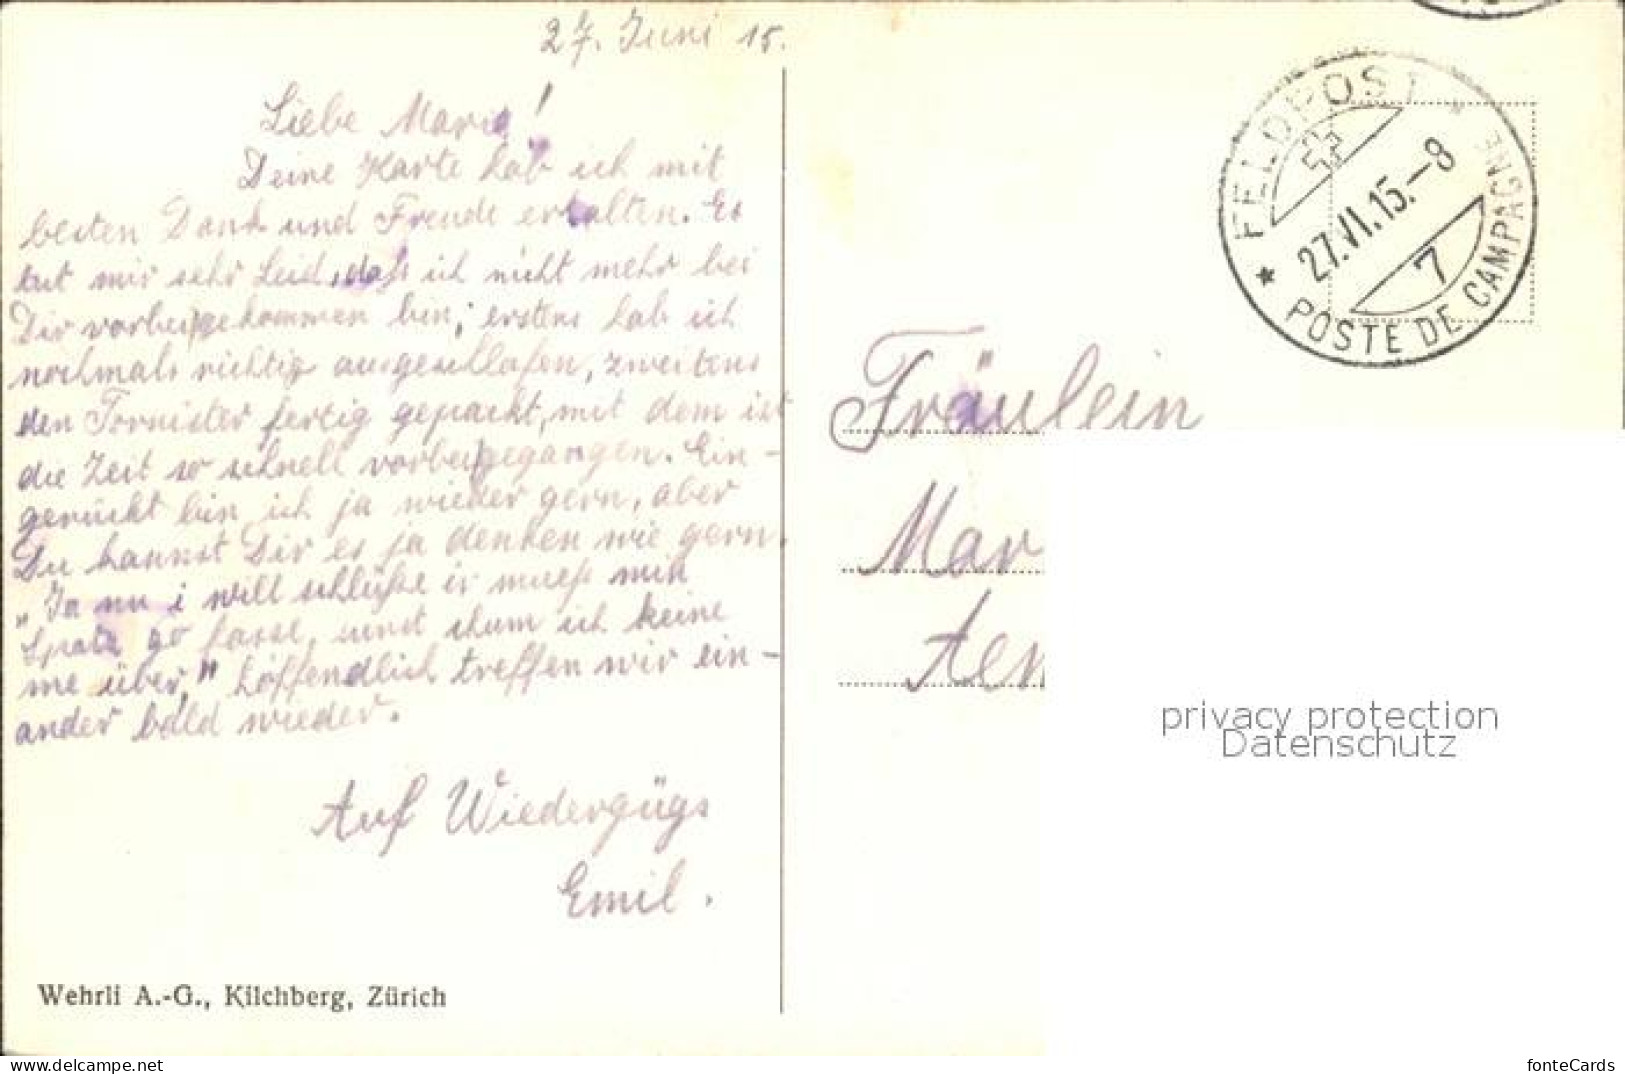 27. Juni 15.
Liebe Marie!
Deine Karte hab ich mit
besten Dank und Freude erhalten. Es
tut mir sehr Leid, daß ich nicht mehr bei
Dir vorbeigekommen bin; erstens hab ich
nochmals richtig ausgeschlafen, zweitens
den Tornister fertig gepackt, mit dem ist
die Zeit so schnell vorbeigegangen. Ein-
gerückt bin ich ja wieder gern, aber
Du kannst Dir es ja denken wie gern.
„Ja nu i will schlüße is mueß min
Spatz go fasse, sunst chum ich keine
me über," hoffendlich treffen wir ein-
ander bald wieder.
Auf Wiedergügs
Emil.
Wehrli A.-G., Kilchberg, Zürich
FELDPOST
27.VI.15.–8
7
POSTE DE CAMPAGNE
Fräulein
Mar
Aen
privacy protection
Datenschutz
www.delcampe.net
fonteCards